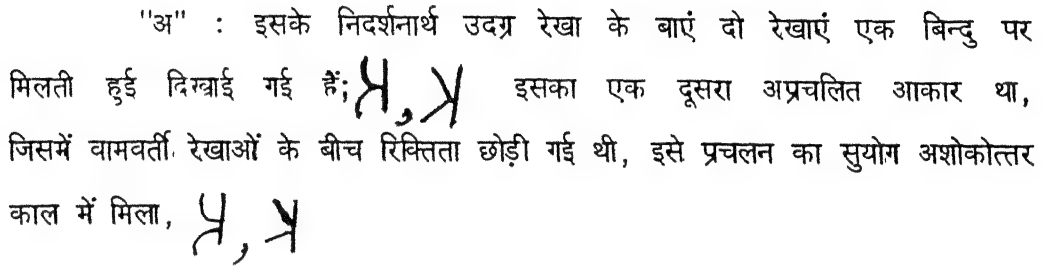 "अ" : इसके निदर्शनार्थ उदग्र रेखा के बाएं दो रेखाएं एक बिन्दु पर
मिलती हुई दिखाई गई हैं; 𑀅, 𑀅 इसका एक दूसरा अप्रचलित आकार था,
जिसमें वामवर्ती रेखाओं के बीच रिक्तिता छोड़ी गई थी, इसे प्रचलन का सुयोग अशोकोत्तर
काल में मिला, 𑀅, 𑀅